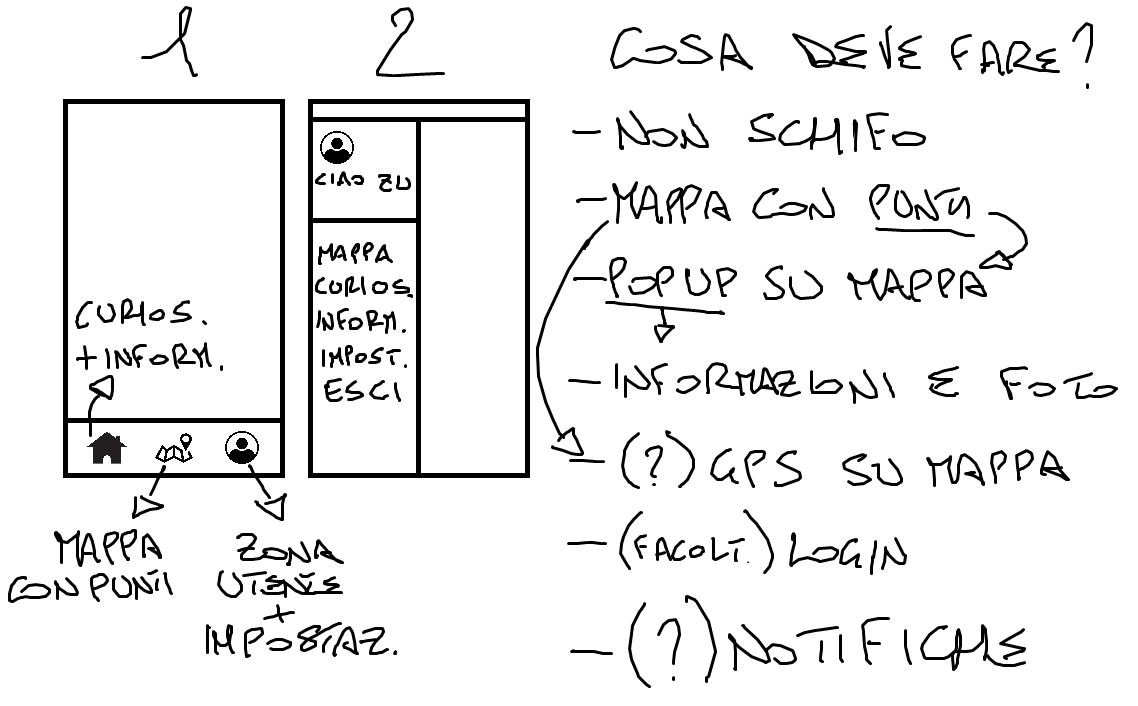 1
CURIOS.
+ INFORM.
MAPPA
CON PUNTI
ZONA
UTENTE
+
IMPOSTAZ.
2
CIAO ZU
MAPPA
CURIOS.
INFORM.
IMPOST.
ESCI
COSA DEVE FARE?
- NON SCHIFO
- MAPPA CON PUNTI
- POPUP SU MAPPA
- INFORMAZIONI E FOTO
- (?) GPS SU MAPPA
- (FACOLT.) LOGIN
- (?) NOTIFICHE